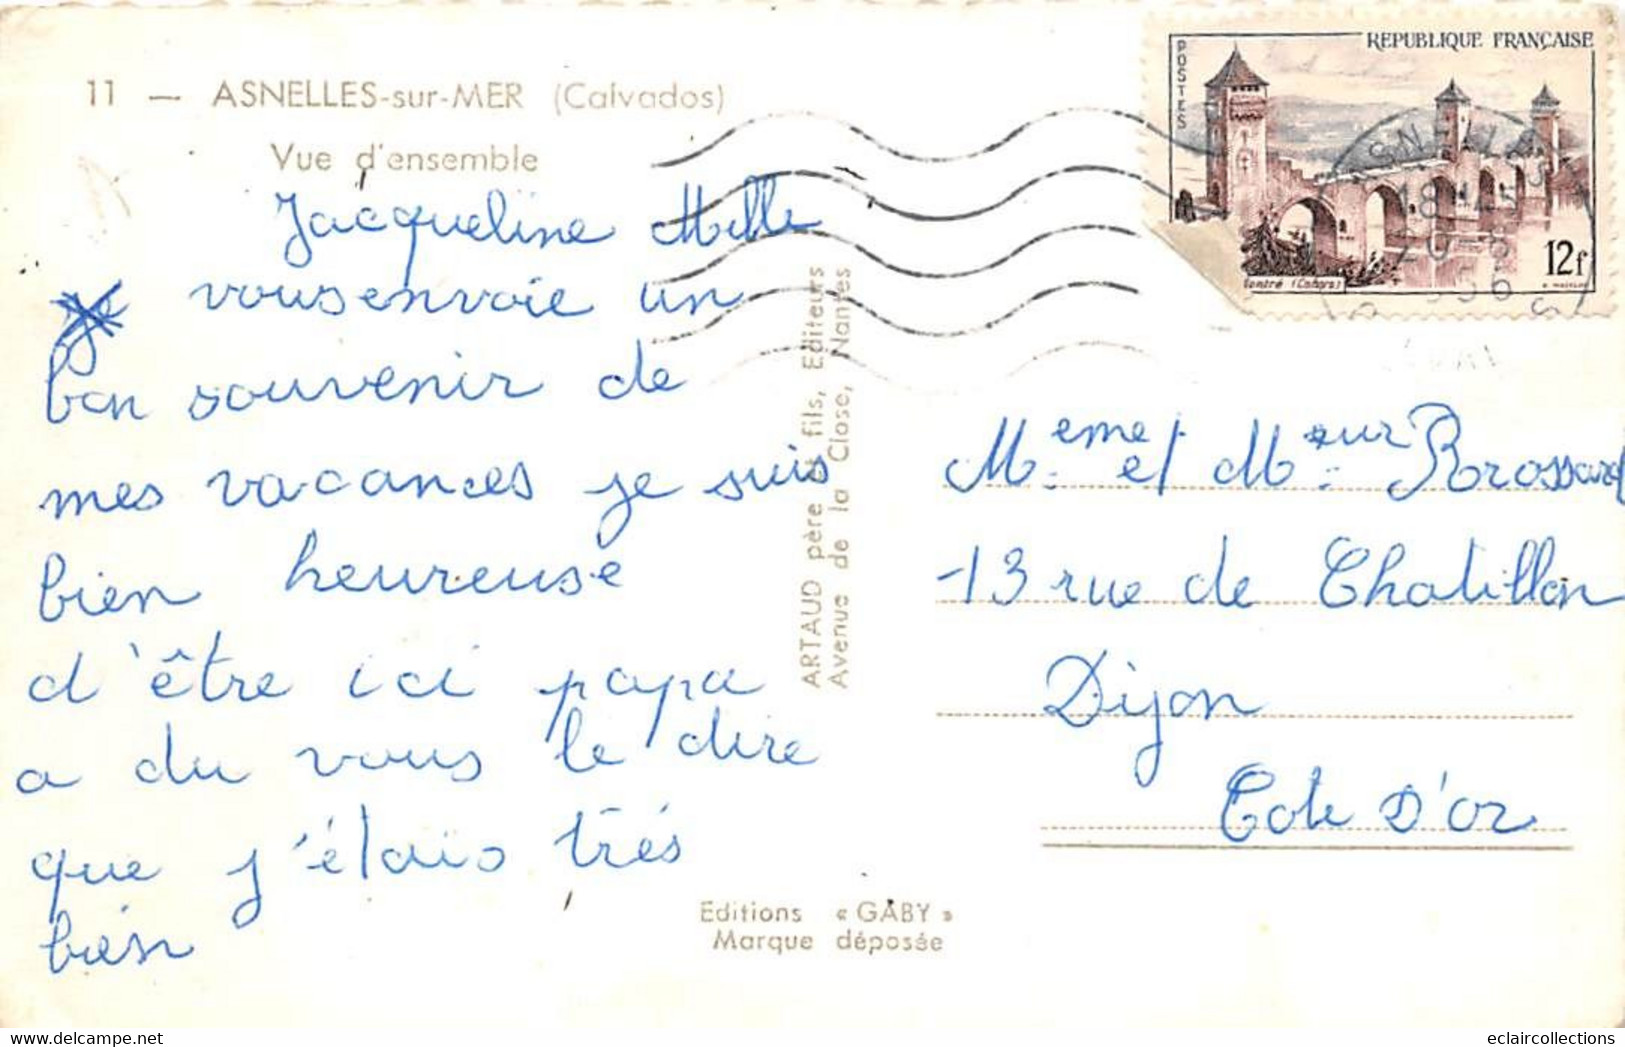 11 — ASNELLES-sur-MER (Calvados)
Vue d'ensemble
Jacqueline Melle
je vous envoie un
bon souvenir de
mes vacances je suis
bien heureuse
d'être ici papa
a du vous le dire
que j'étais trés
bien
ARTAUD père et fils, Editeurs
Avenue de la Close, Nantes
Editions « GABY »
Marque déposée
POSTES
REPUBLIQUE FRANÇAISE
12f
Meme et Mr Brossard
13 rue de Chatillon
Dijon
Cote D'or
eclaircollections